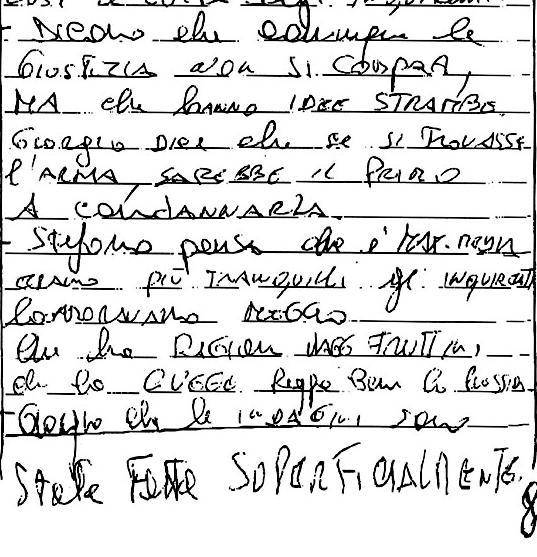 - Dicono che comunque la
GIUSTIZIA NON SI COMPRA,
MA che hanno IDEE STRAMBE.
Giorgio DICE che se SI TROVASSE
l'ARMA, SAREBBE IL PRIMO
A CONDANNARLA.
- Stefano pensa che
erano PIÙ TRANQUILLI gl' INQUIRENTI
lavoravano MEGLIO
che ha
che ha Regge Bene la
- Giorgio che le INDAGINI sono
State Fatte SUPERFICIALMENTE.
8